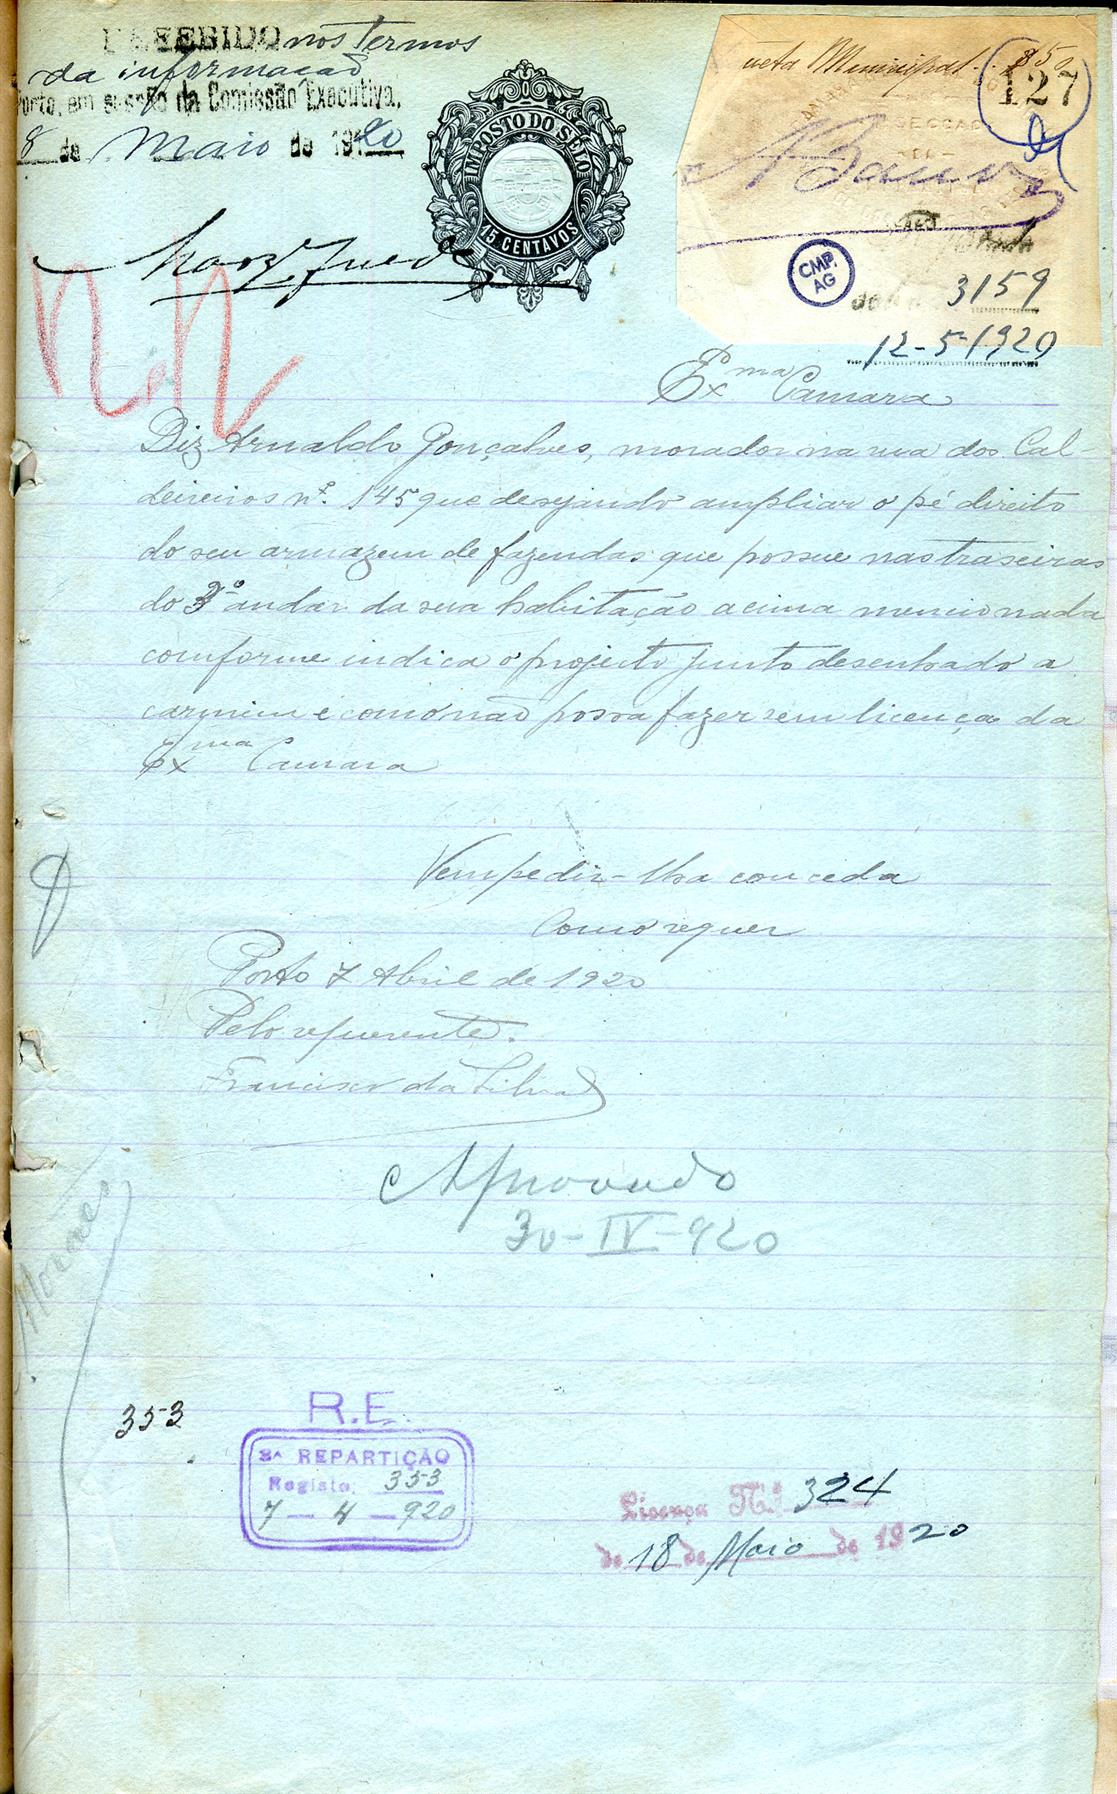 DEFERIDO nos termos
da informação
Porto, em sessão da Comissão Executiva,
8 de Maio de 1920
IMPOSTO DO SELO
15 CENTAVOS
Municipal 850
127
SECÇÃO
CMP.
AG
3159
12-5-1920
Exma Camara
Diz Arnaldo Gonçalves, morador na rua dos Cal-
deireiros nº. 145 que desejando ampliar o pé direito
do seu armazem de fazendas que possue nas traseiras
do 3º andar da sua habitação acima mencionada
comforme indica o projecto junto desenhado a
carmim e como não possa fazer sem licença da
Exma Camara
Vem pedir-lha conceda
como requer
Porto 7 Abril de 1920
Pelo requerente.
Francisco da Silva
Aprovado
30-IV-920
Moraes
353
R.E.
3ª REPARTIÇÃO
Registo, 353
7-4-920
Licença N.º 324
de 18 de Maio de 1920